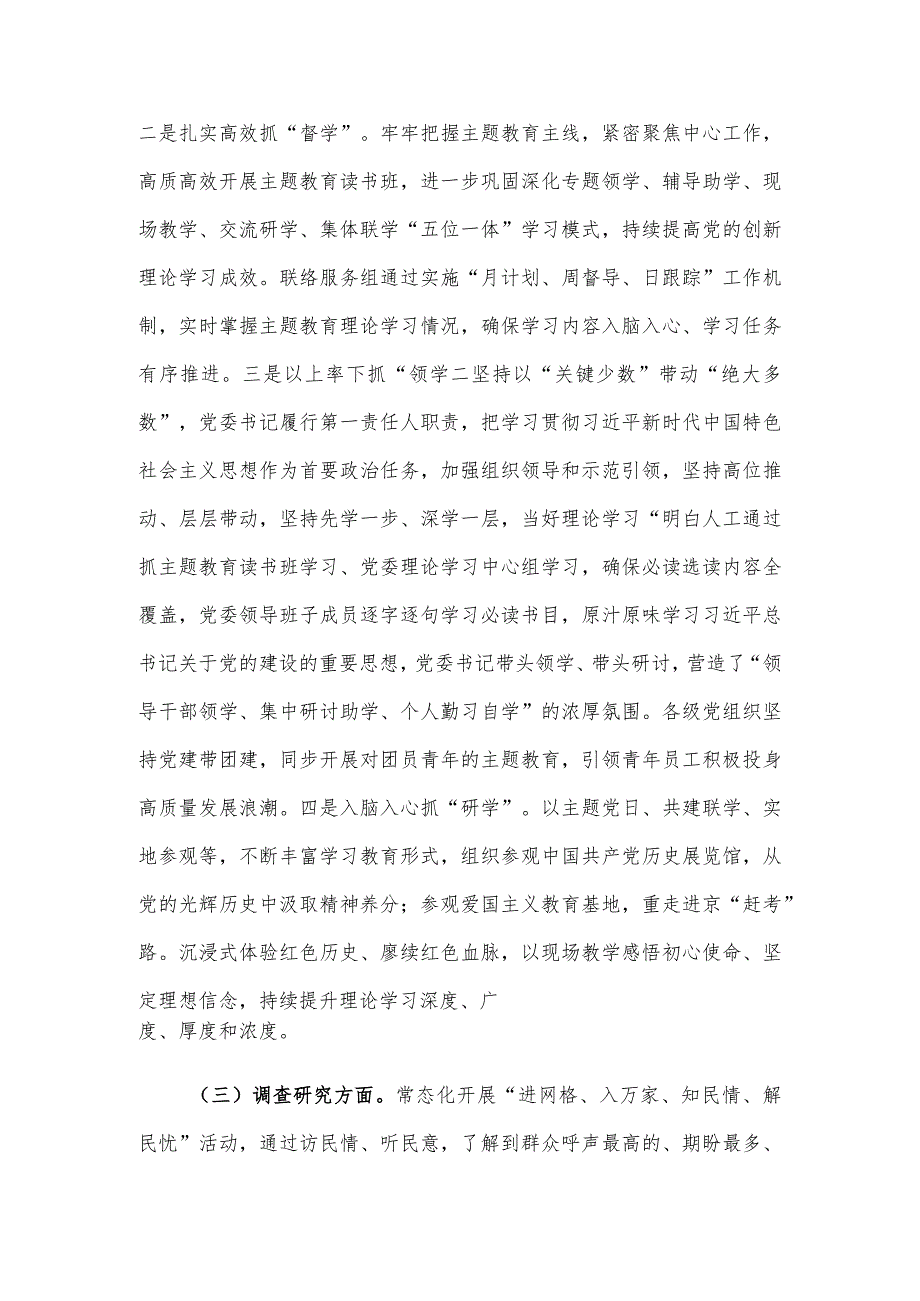 二是扎实高效抓“督学”。牢牢把握主题教育主线，紧密聚焦中心工作，
高质高效开展主题教育读书班，进一步巩固深化专题领学、辅导助学、现
场教学、交流研学、集体联学“五位一体”学习模式，持续提高党的创新
理论学习成效。联络服务组通过实施“月计划、周督导、日跟踪”工作机
制，实时掌握主题教育理论学习情况，确保学习内容入脑入心、学习任务
有序推进。三是以上率下抓“领学二坚持以“关键少数”带动“绝大多
数”，党委书记履行第一责任人职责，把学习贯彻习近平新时代中国特色
社会主义思想作为首要政治任务，加强组织领导和示范引领，坚持高位推
动、层层带动，坚持先学一步、深学一层，当好理论学习“明白人工通过
抓主题教育读书班学习、党委理论学习中心组学习，确保必读选读内容全
覆盖，党委领导班子成员逐字逐句学习必读书目，原汁原味学习习近平总
书记关于党的建设的重要思想，党委书记带头领学、带头研讨，营造了“领
导干部领学、集中研讨助学、个人勤习自学”的浓厚氛围。各级党组织坚
持党建带团建，同步开展对团员青年的主题教育，引领青年员工积极投身
高质量发展浪潮。四是入脑入心抓“研学”。以主题党日、共建联学、实
地参观等，不断丰富学习教育形式，组织参观中国共产党历史展览馆，从
党的光辉历史中汲取精神养分；参观爱国主义教育基地，重走进京“赶考”
路。沉浸式体验红色历史、廖续红色血脉，以现场教学感悟初心使命、坚
定理想信念，持续提升理论学习深度、广
度、厚度和浓度。
（三）调查研究方面。常态化开展“进网格、入万家、知民情、解
民忧”活动，通过访民情、听民意，了解到群众呼声最高的、期盼最多、